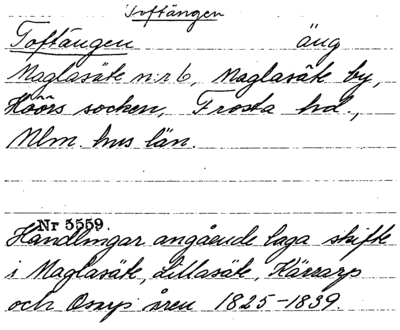 Toftängen
Toftängen äng
Maglasäte nr 6, Maglasäte by,
Höörs socken, Frosta hd.,
Mlm. hus län.
Nr 5559.
Handlingar angående laga skifte
i Maglasäte, Lillasäte, Kärrarp
och Osup åren 1825-1839.